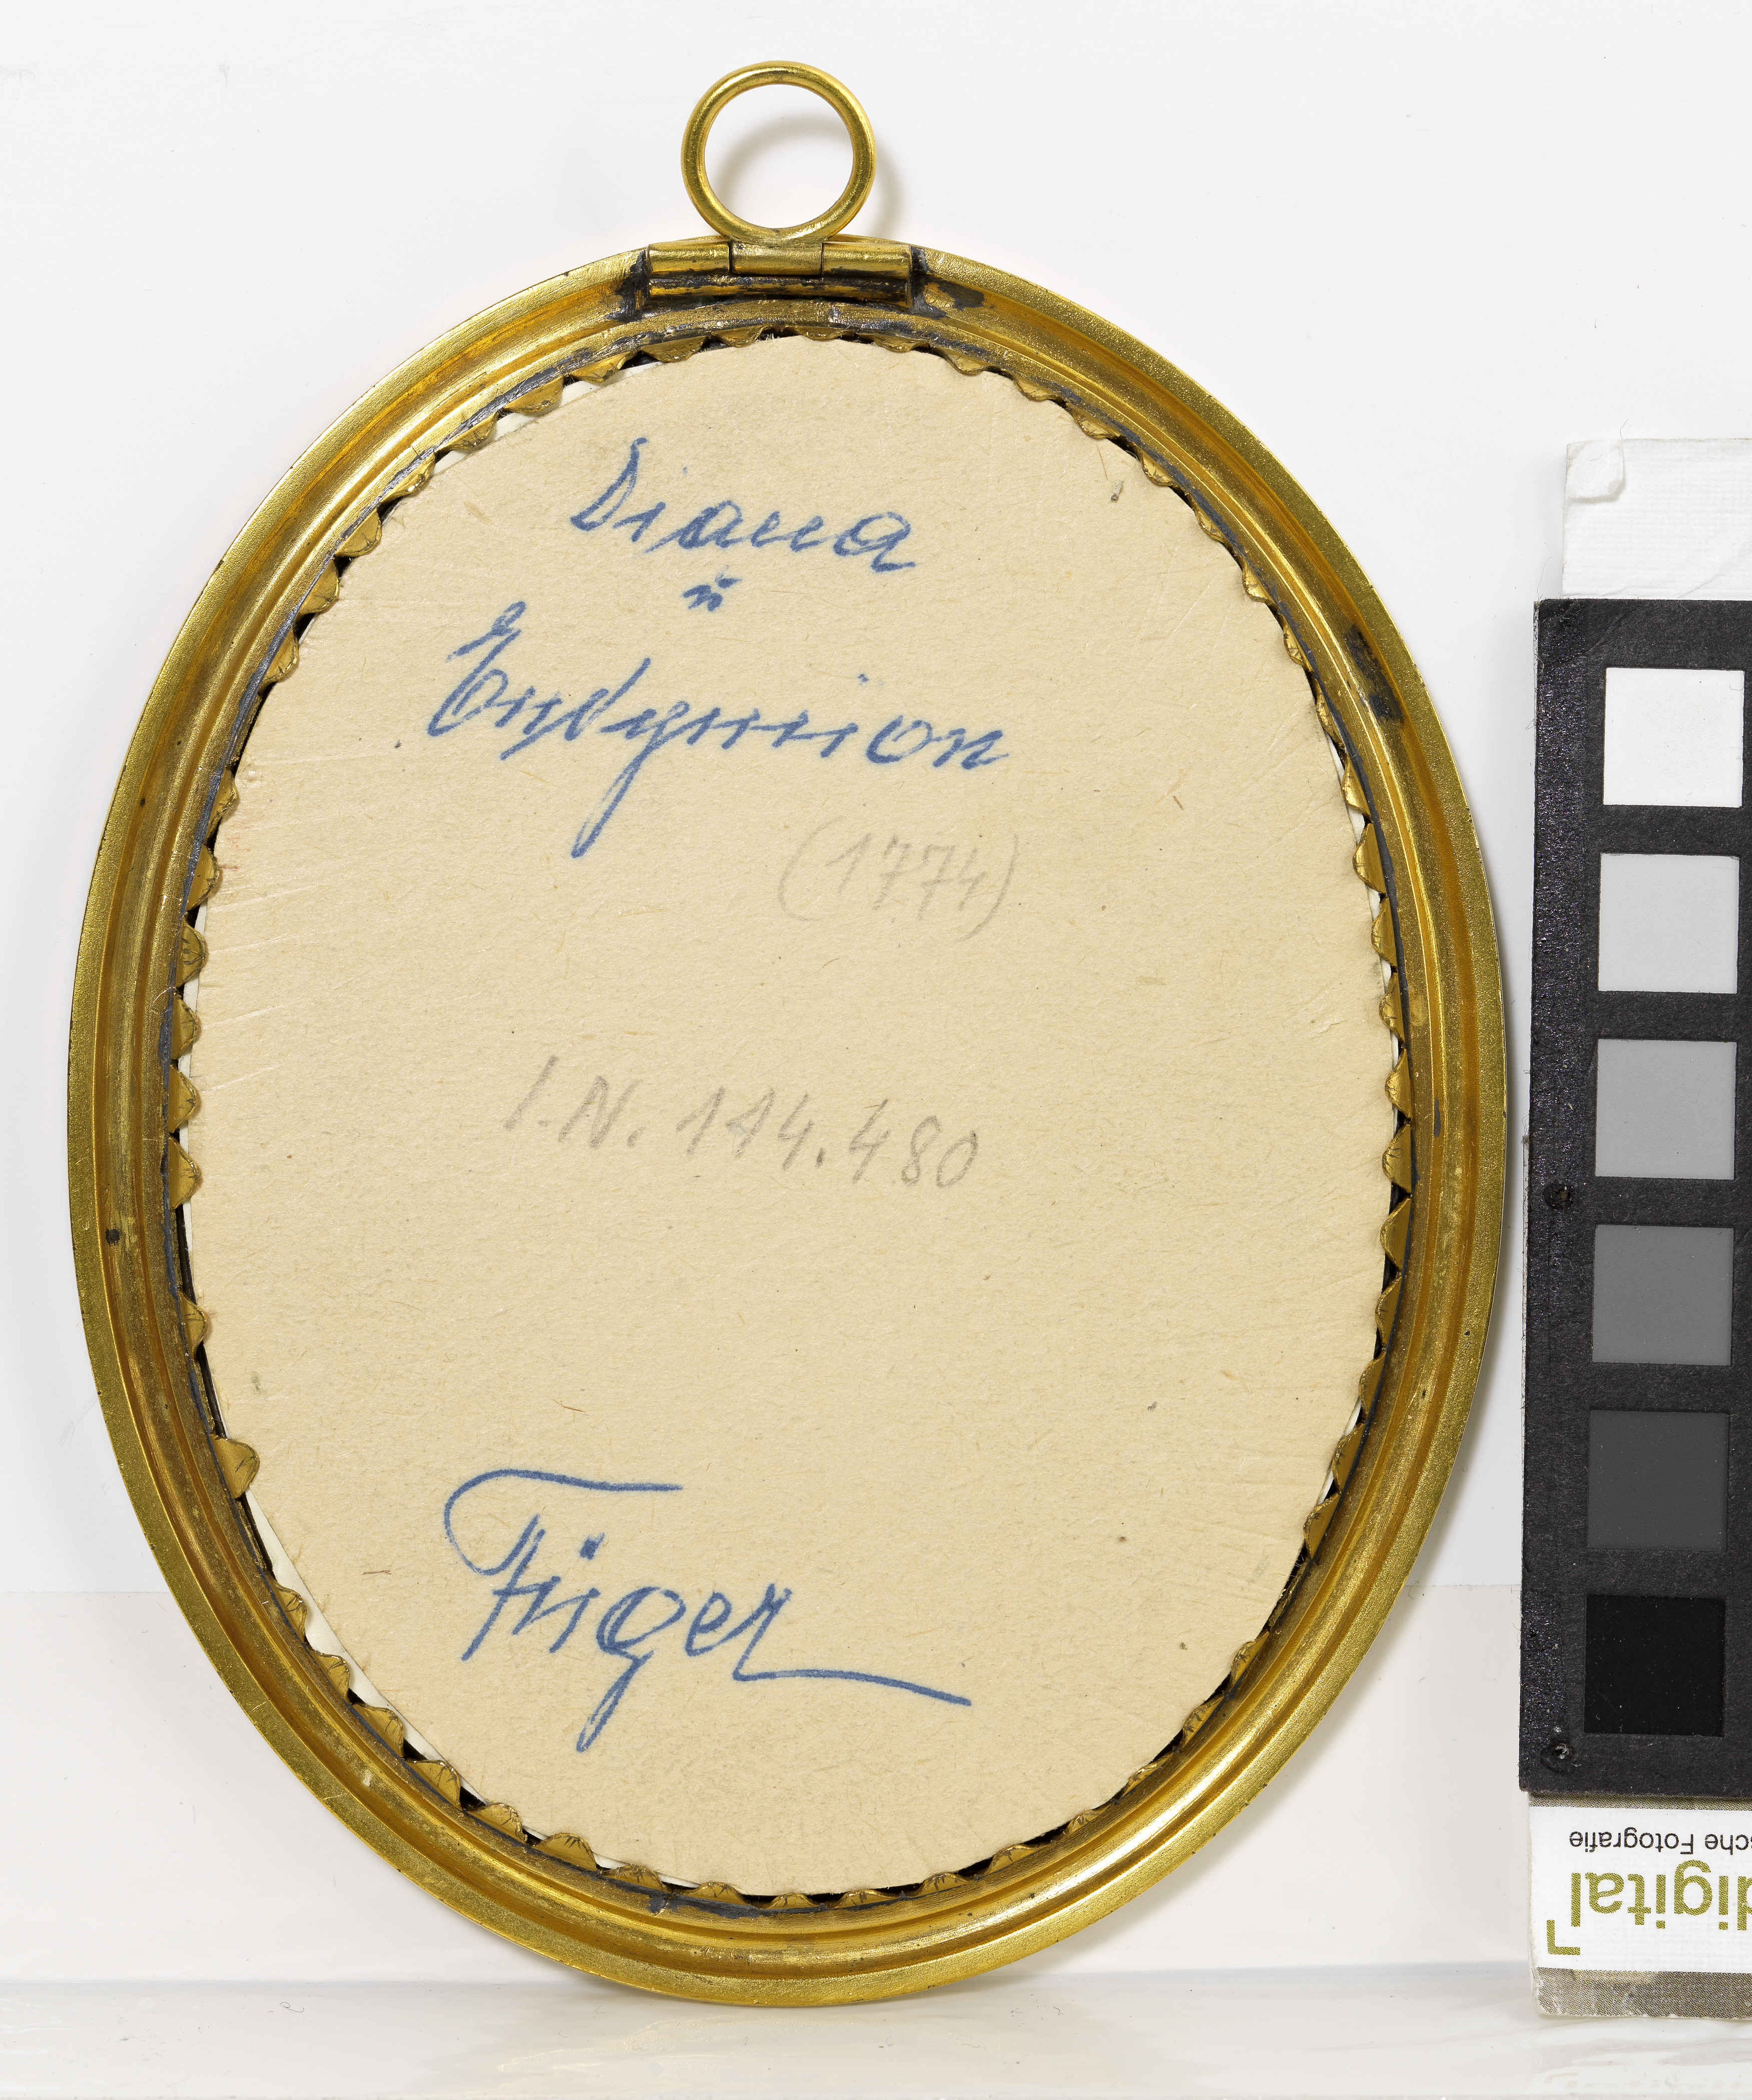 Diana
u
Endymion
(1774)
I.N. 114.480
Füger
sche Fotografie
digital